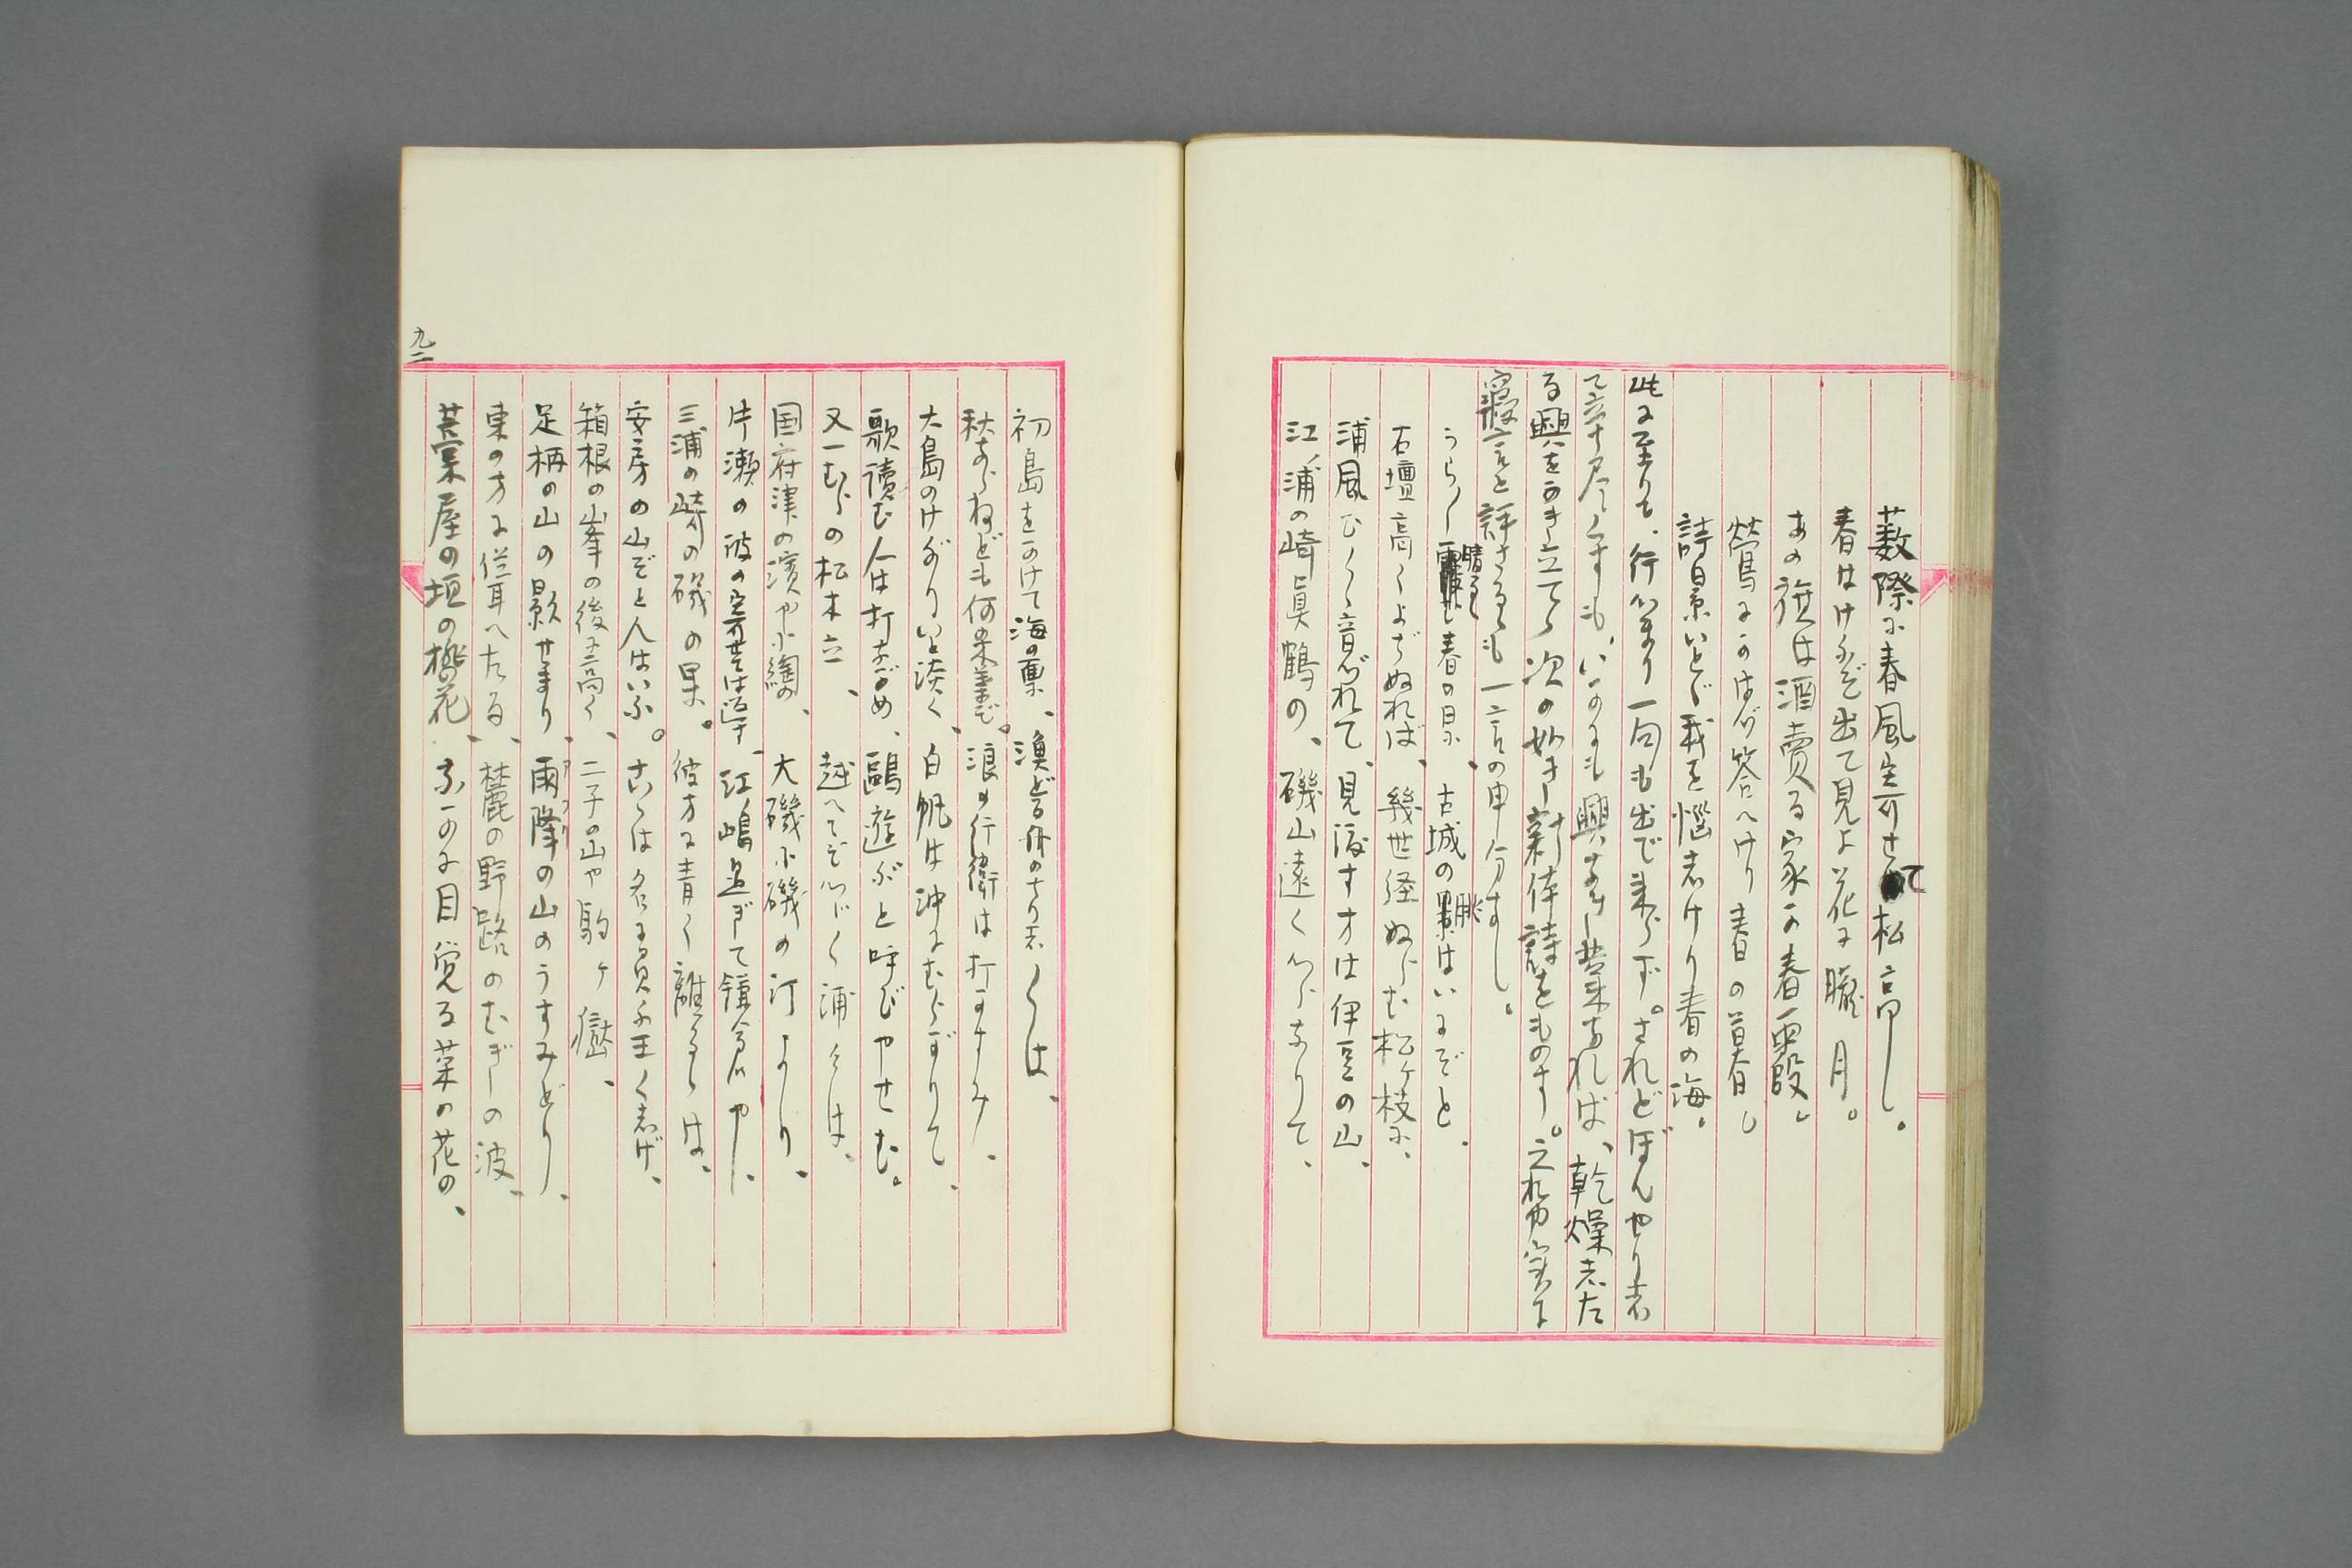 薮際に春風寄せて松高し。
春はけふぞ出て見よ花に朧月。
あの旗は酒売る家か春霞。
鶯にかはづ答へけり春の暮。
詩景いとゞ我を悩しけり春の海。
此に至りて、行つまり一句も出で来らず。されどぼんやりし
て立ち尽くすも、いかにも興なき業なれば、乾燥した
る興をかき立てゝ次の如き新体詩をものす。之れ実に
寝言と評さるゝも一言の申分なし。
うらゝ晴るゝ春の日に、古城の眺はいかにぞと、
石壇高くよぢぬれば、幾世経ぬらむ松ヶ枝に、
浦風ひくゝ音づれて、見渡す方は伊豆の山、
江ノ浦の崎真鶴の、磯山遠くつらなりて、
初島をかけて海の東、漁どる舟のちりしくは、
秋ならねども何木葉ぞ。浪の行衛は打かすみ、
大島のけぶりいと淡く、白帆は沖にむらがりて、
歌読む人は打ながめ、鷗遊ぶと呼びやせむ。
又一むらの松木立、越へてぞつゞく浦々は、
国府津の濱や小綯の、大磯小磯の汀より、
片瀬の波の寄せては返す、江ノ嶋過ぎて鎌倉や、
三浦の崎の磯の果。彼方に青く離るゝは、
安房の山ぞと人はいふ。こゝは名に負ふ玉くしげ、
箱根の山峯の後に高く、二子の山や駒ヶ嶽、
足柄の山の影せまり、雨降の山のうすみどり、
東の方に聳へたる、麓の野路のむぎの波、
茶屋の垣の桜花、ふかに目覚る菜の花の、
九一